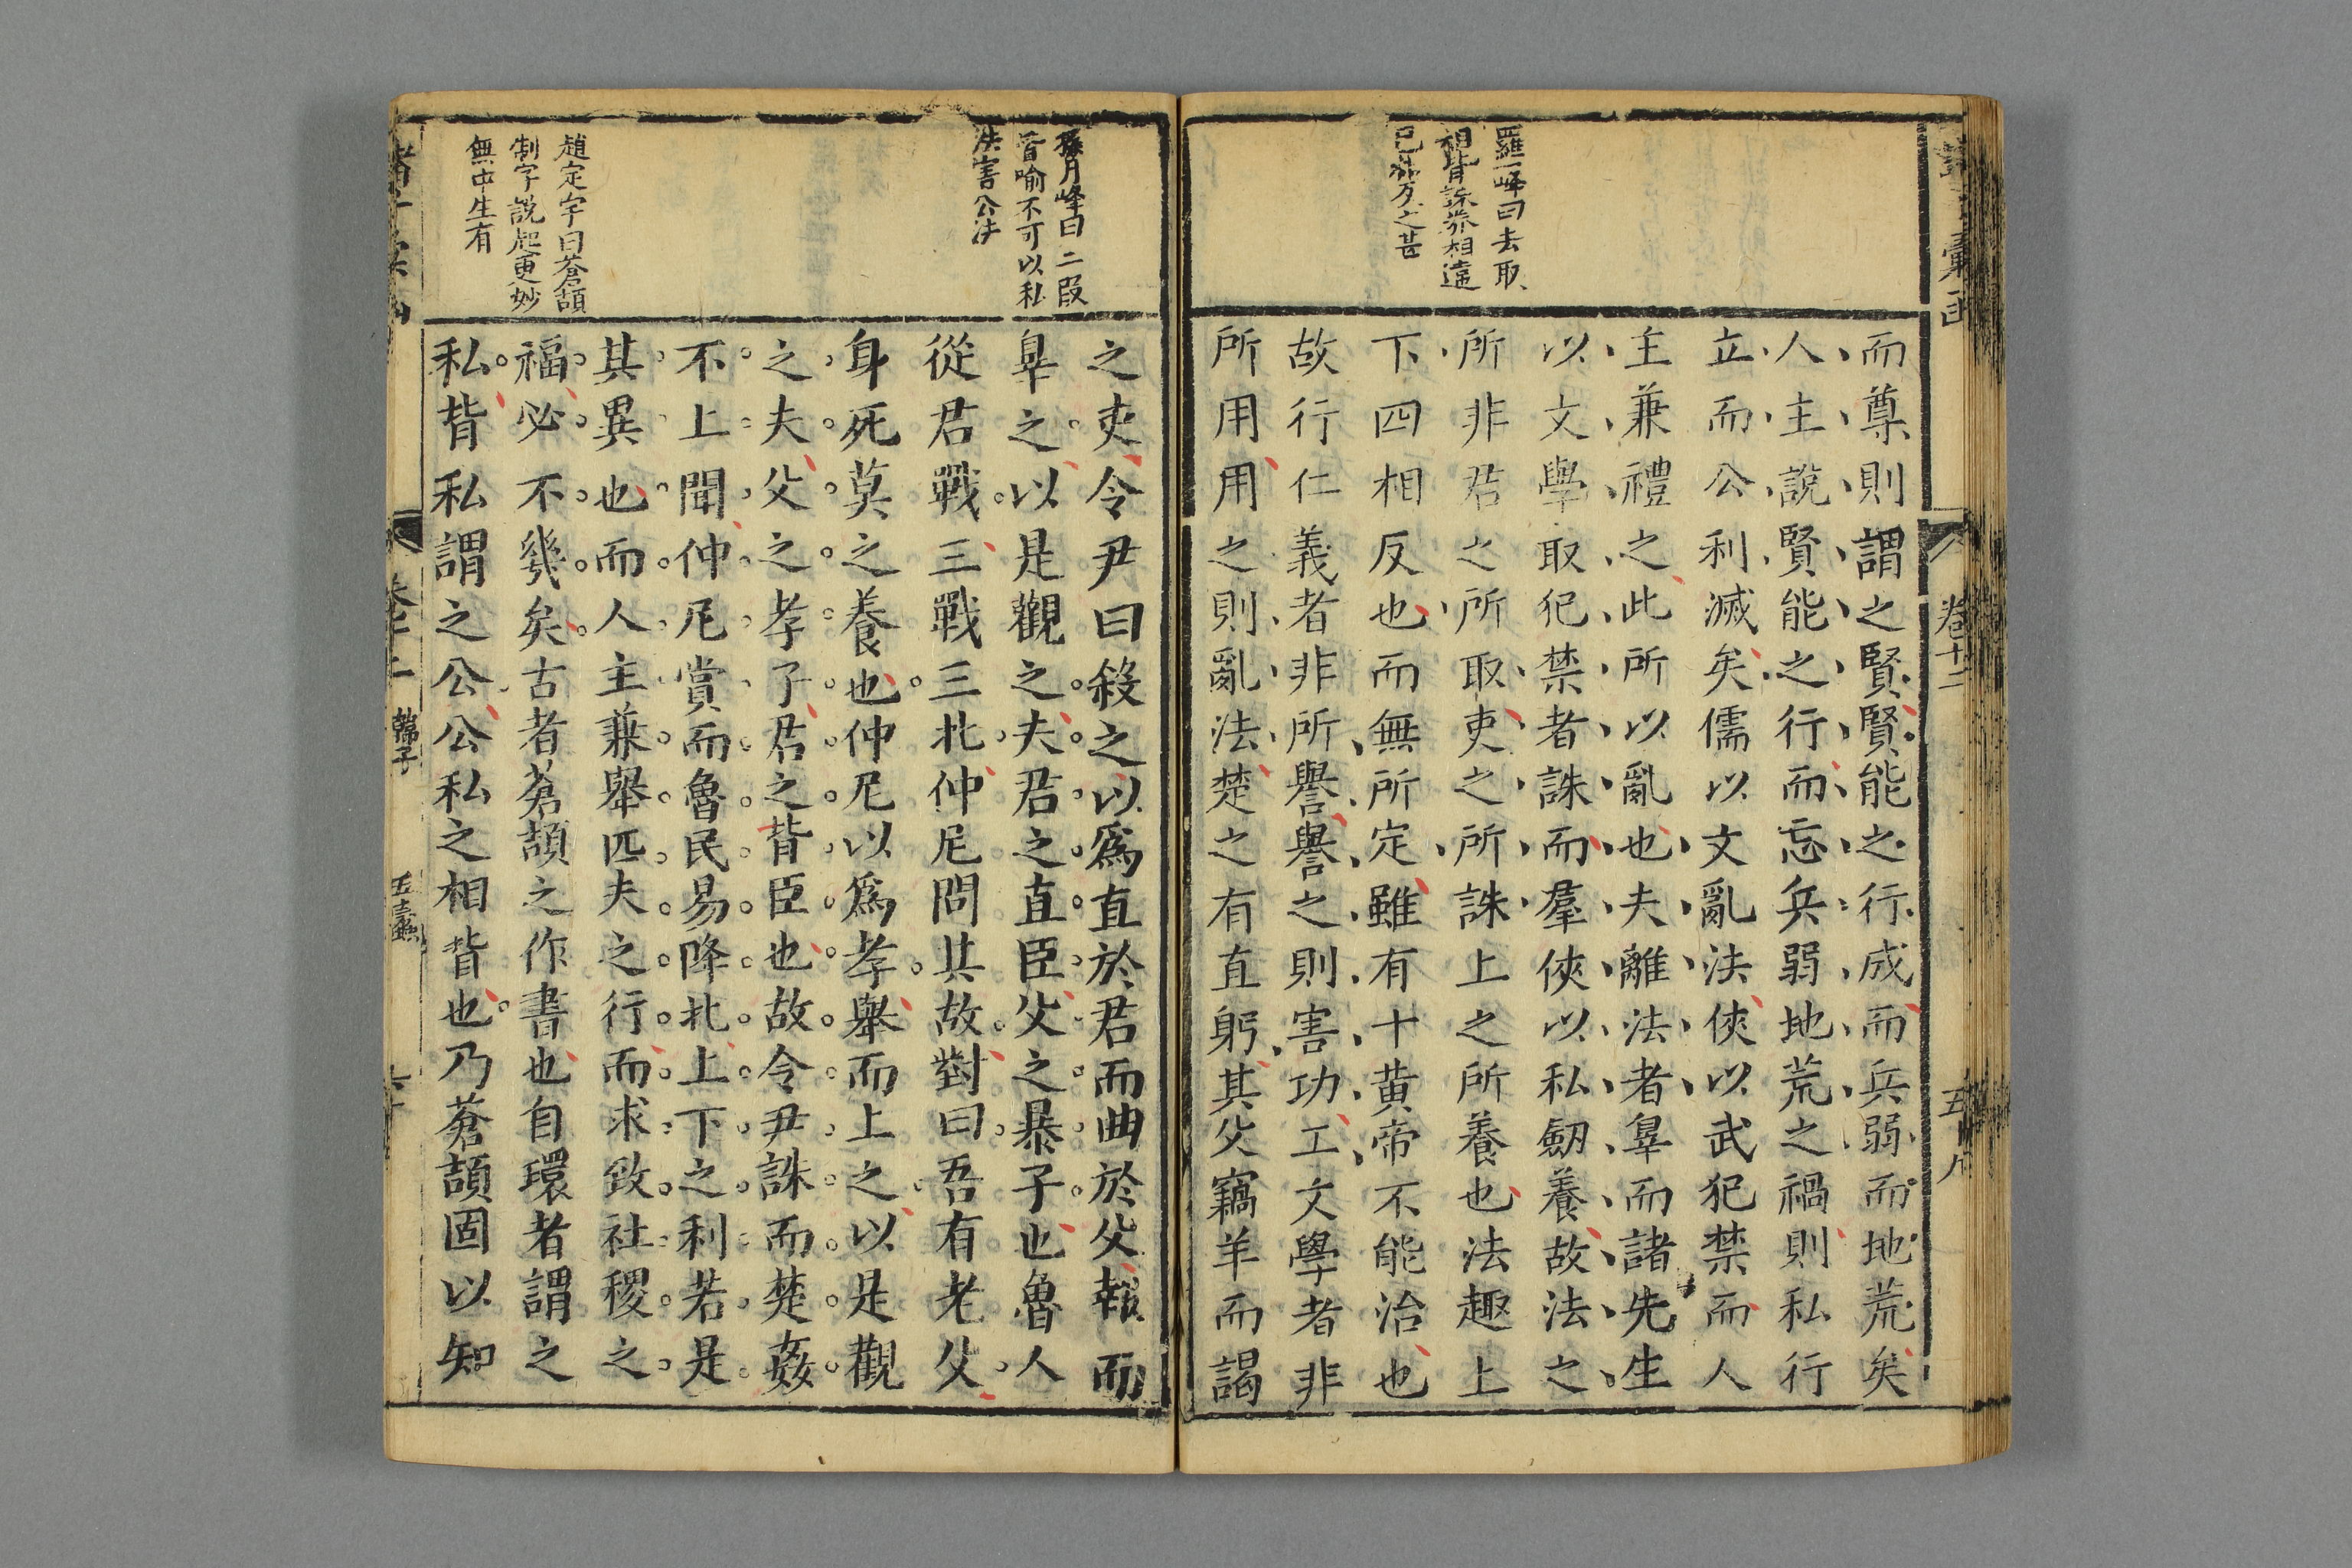 羅一峰曰去取
相背誅養相違
已
而尊則謂之賢賢能之行成而兵弱而地荒矣
人主說賢能之行而忘兵弱地荒之禍則私行
立而公利滅矣儒以文亂法俠以武犯禁而人
主兼禮之此所以亂也夫離法者辠而諸先生
以文學取犯禁者誅而羣俠以私劒養故法之
所非君之所取吏之所誅上之所養也法趣上
下四相反也而無所定雖有十黄帝不能治也
故行仁義者非所譽譽之則害功工文學者非
所用用之則亂法楚之有直躬其父竊羊而謁
卷十二
孫月峰曰二段
皆喻不可以私
法害公法
趙定宇曰蒼頡
制字說起更妙
無中生有
之吏令尹曰殺之以爲直於君而曲於父報而
辠之以是觀之夫君之直臣父之暴子也魯人
從君戰三戰三北仲尼問其故對曰吾有老父
身死莫之養也仲尼以爲孝舉而上之以是觀
之夫父之孝子君之背臣也故令尹誅而楚姦
不上聞仲尼賞而魯民易降北上下之利若是
其異也而人主兼舉匹夫之行而求致社稷之
福必不幾矣古者蒼頡之作書也自環者謂之
私背私謂之公公私之相背也乃蒼頡固以知
韓子
五蠹